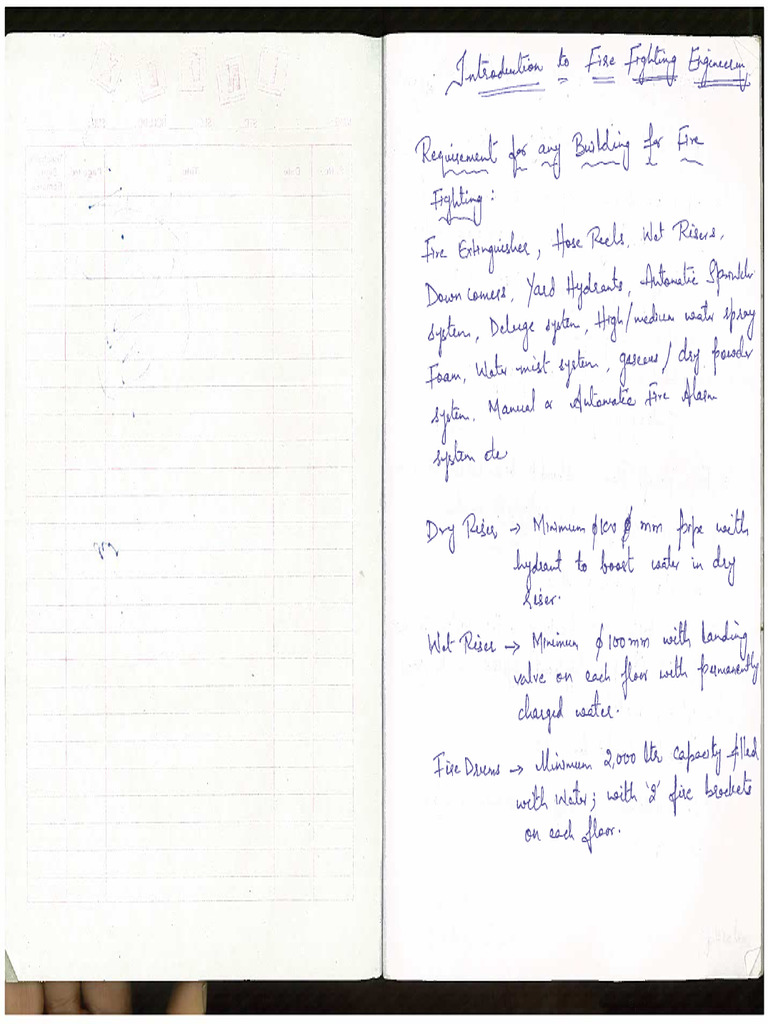 Introduction to Fire Fighting Engineering
Requirement for any Building for Fire
Fighting :
Fire Extinguisher, Hose Reels, Wet Risers,
Down comers, Yard Hydrants, Automatic Sprinkler
system, Deluge system, High/medium water spray
Foam, Water mist system, gaseous/dry powder
system. Manual or Automatic Fire Alarm
system etc
Dry Riser → Minimum ϕ100 mm pipe with
hydrant to boost water in dry
riser.
Wet Riser → Minimum ϕ100mm with landing
valve on each floor with permanently
charged water.
Fire Drums → Minimum 2,000 ltr capacity filled
with Water; with '2' fire brackets
on each floor.